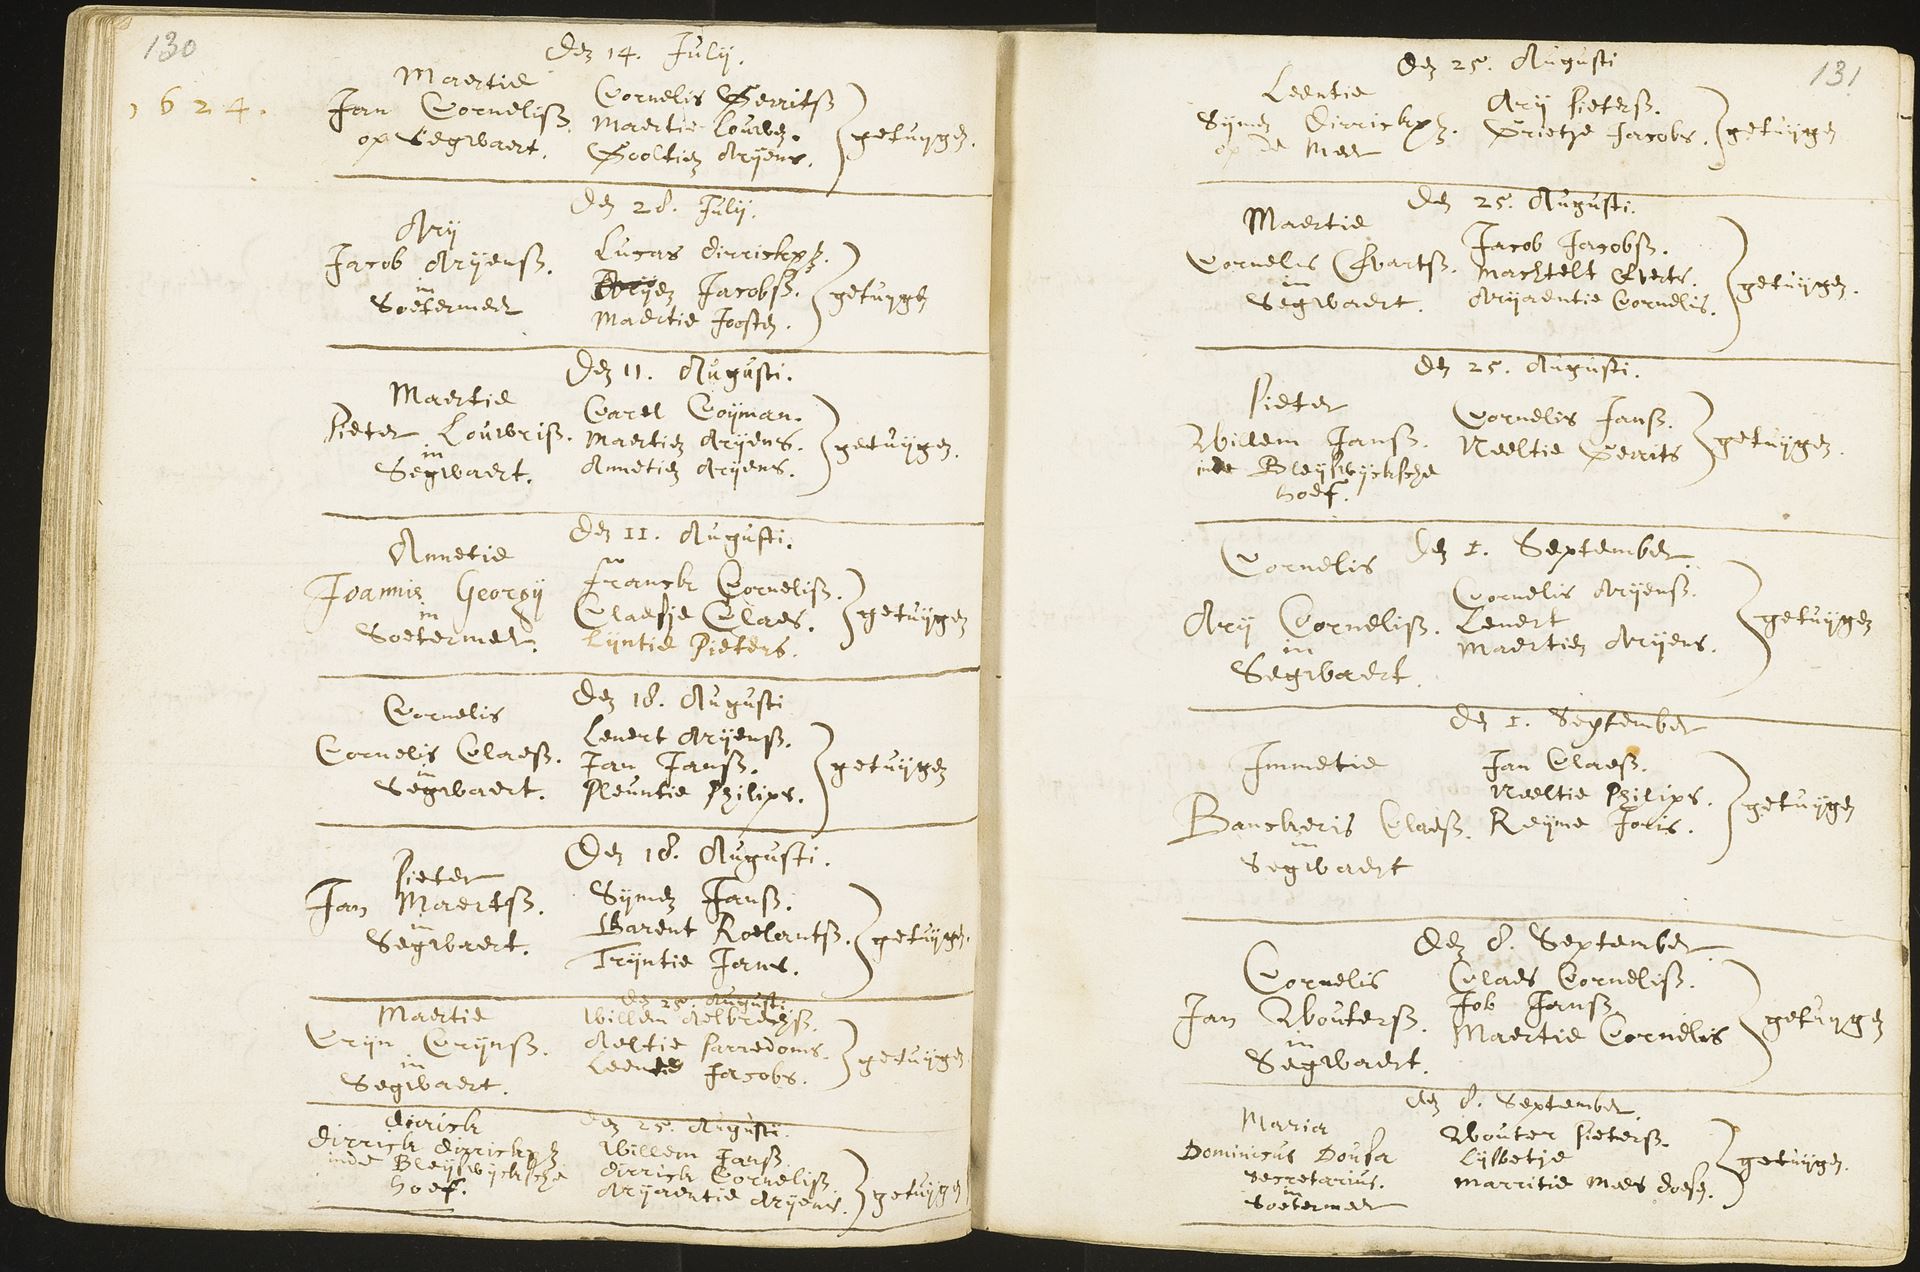 130
1624.
Den 14. Julij.
Maertie
Jan Cornelisz.
op Segwaert.
Cornelis Gerritsz
Maertie Louwen.
Gooltien Arijens.
getuijgen.
Den 28. Julij.
Arij
Jacob Arijensz.
in
Soetermeer
Lucas Dirrickxz.
Arijen Jacobsz.
Maertie Joosten.
getuijgen
Den 11. Augusti.
Maertie
Pieter Louwrisz.
in
Segwaert.
Carel Coijman.
Maertien Arijens.
Annetien Arijens.
getuijgen.
Den 11. Augusti.
Annetie
Joannis Georgij
in
Soetermeer.
Franck Cornelisz.
Claesje Claes.
Lijntie Pieters.
getuijgen
Den 18. Augusti
Cornelis
Cornelis Claesz.
in
Segwaert.
Lenert Arijensz.
Jan Jansz.
Pleuntie Philips.
getuijgen
Den 18. Augusti.
Pieter
Jan Maertsz.
in
Segwaert.
Sijmen Jansz.
Barent Roelantsz.
Trijntie Jans.
getuijgen.
den 25. Augusti
Maertie
Crijn Crijnsz.
in
Segwaert.
Willem Aelbrechsz.
Aeltie Parredoms.
Leentie Jacobs.
getuijgen
den 25. Augusti.
Dirrick
Dirrick Dirrickxz
inde Bleijswijcksche
hoef.
Willem Jansz
Dirrick Cornelisz
Arijaentie Arijens.
getuijgen
131
Den 25. Augusti
Leentie
Sijmen Dirrickxz.
op de Meer
Arij Pietersz.
Grietje Jacobs.
getuijgen.
Den 25. Augusti.
Maertie
Cornelis Evartsz.
in
Segwaert.
Jacob Jacobsz.
Machtelt Everts.
Arijaentie Cornelis.
getuijgen.
Den 25. Augusti.
Pieter
Willem Jansz.
inde Bleijswijcksche
hoef.
Cornelis Jansz.
Neeltie Gerrits
getuijgen.
Den 1. September.
Cornelis
Arij Cornelisz.
in
Segwaert.
Cornelis Arijensz.
Lenert
Maertien Arijens.
getuijgen
Den 1. September
Immetie
Banckeris Claesz.
in
Segwaert
Jan Claesz.
Neeltie Philips.
Reijme Joris.
getuijgen
Den 8. September.
Cornelis
Jan Woutersz.
in
Segwaert.
Claes Cornelisz.
Job Jansz
Maertie Cornelis
getuijgen
den 8. September.
Maria
Dominicus Dousa
Secretarius.
in
Soetermeer
Wouter Pietersz.
Lijsbetje
Marritie Mees
getuijgen.